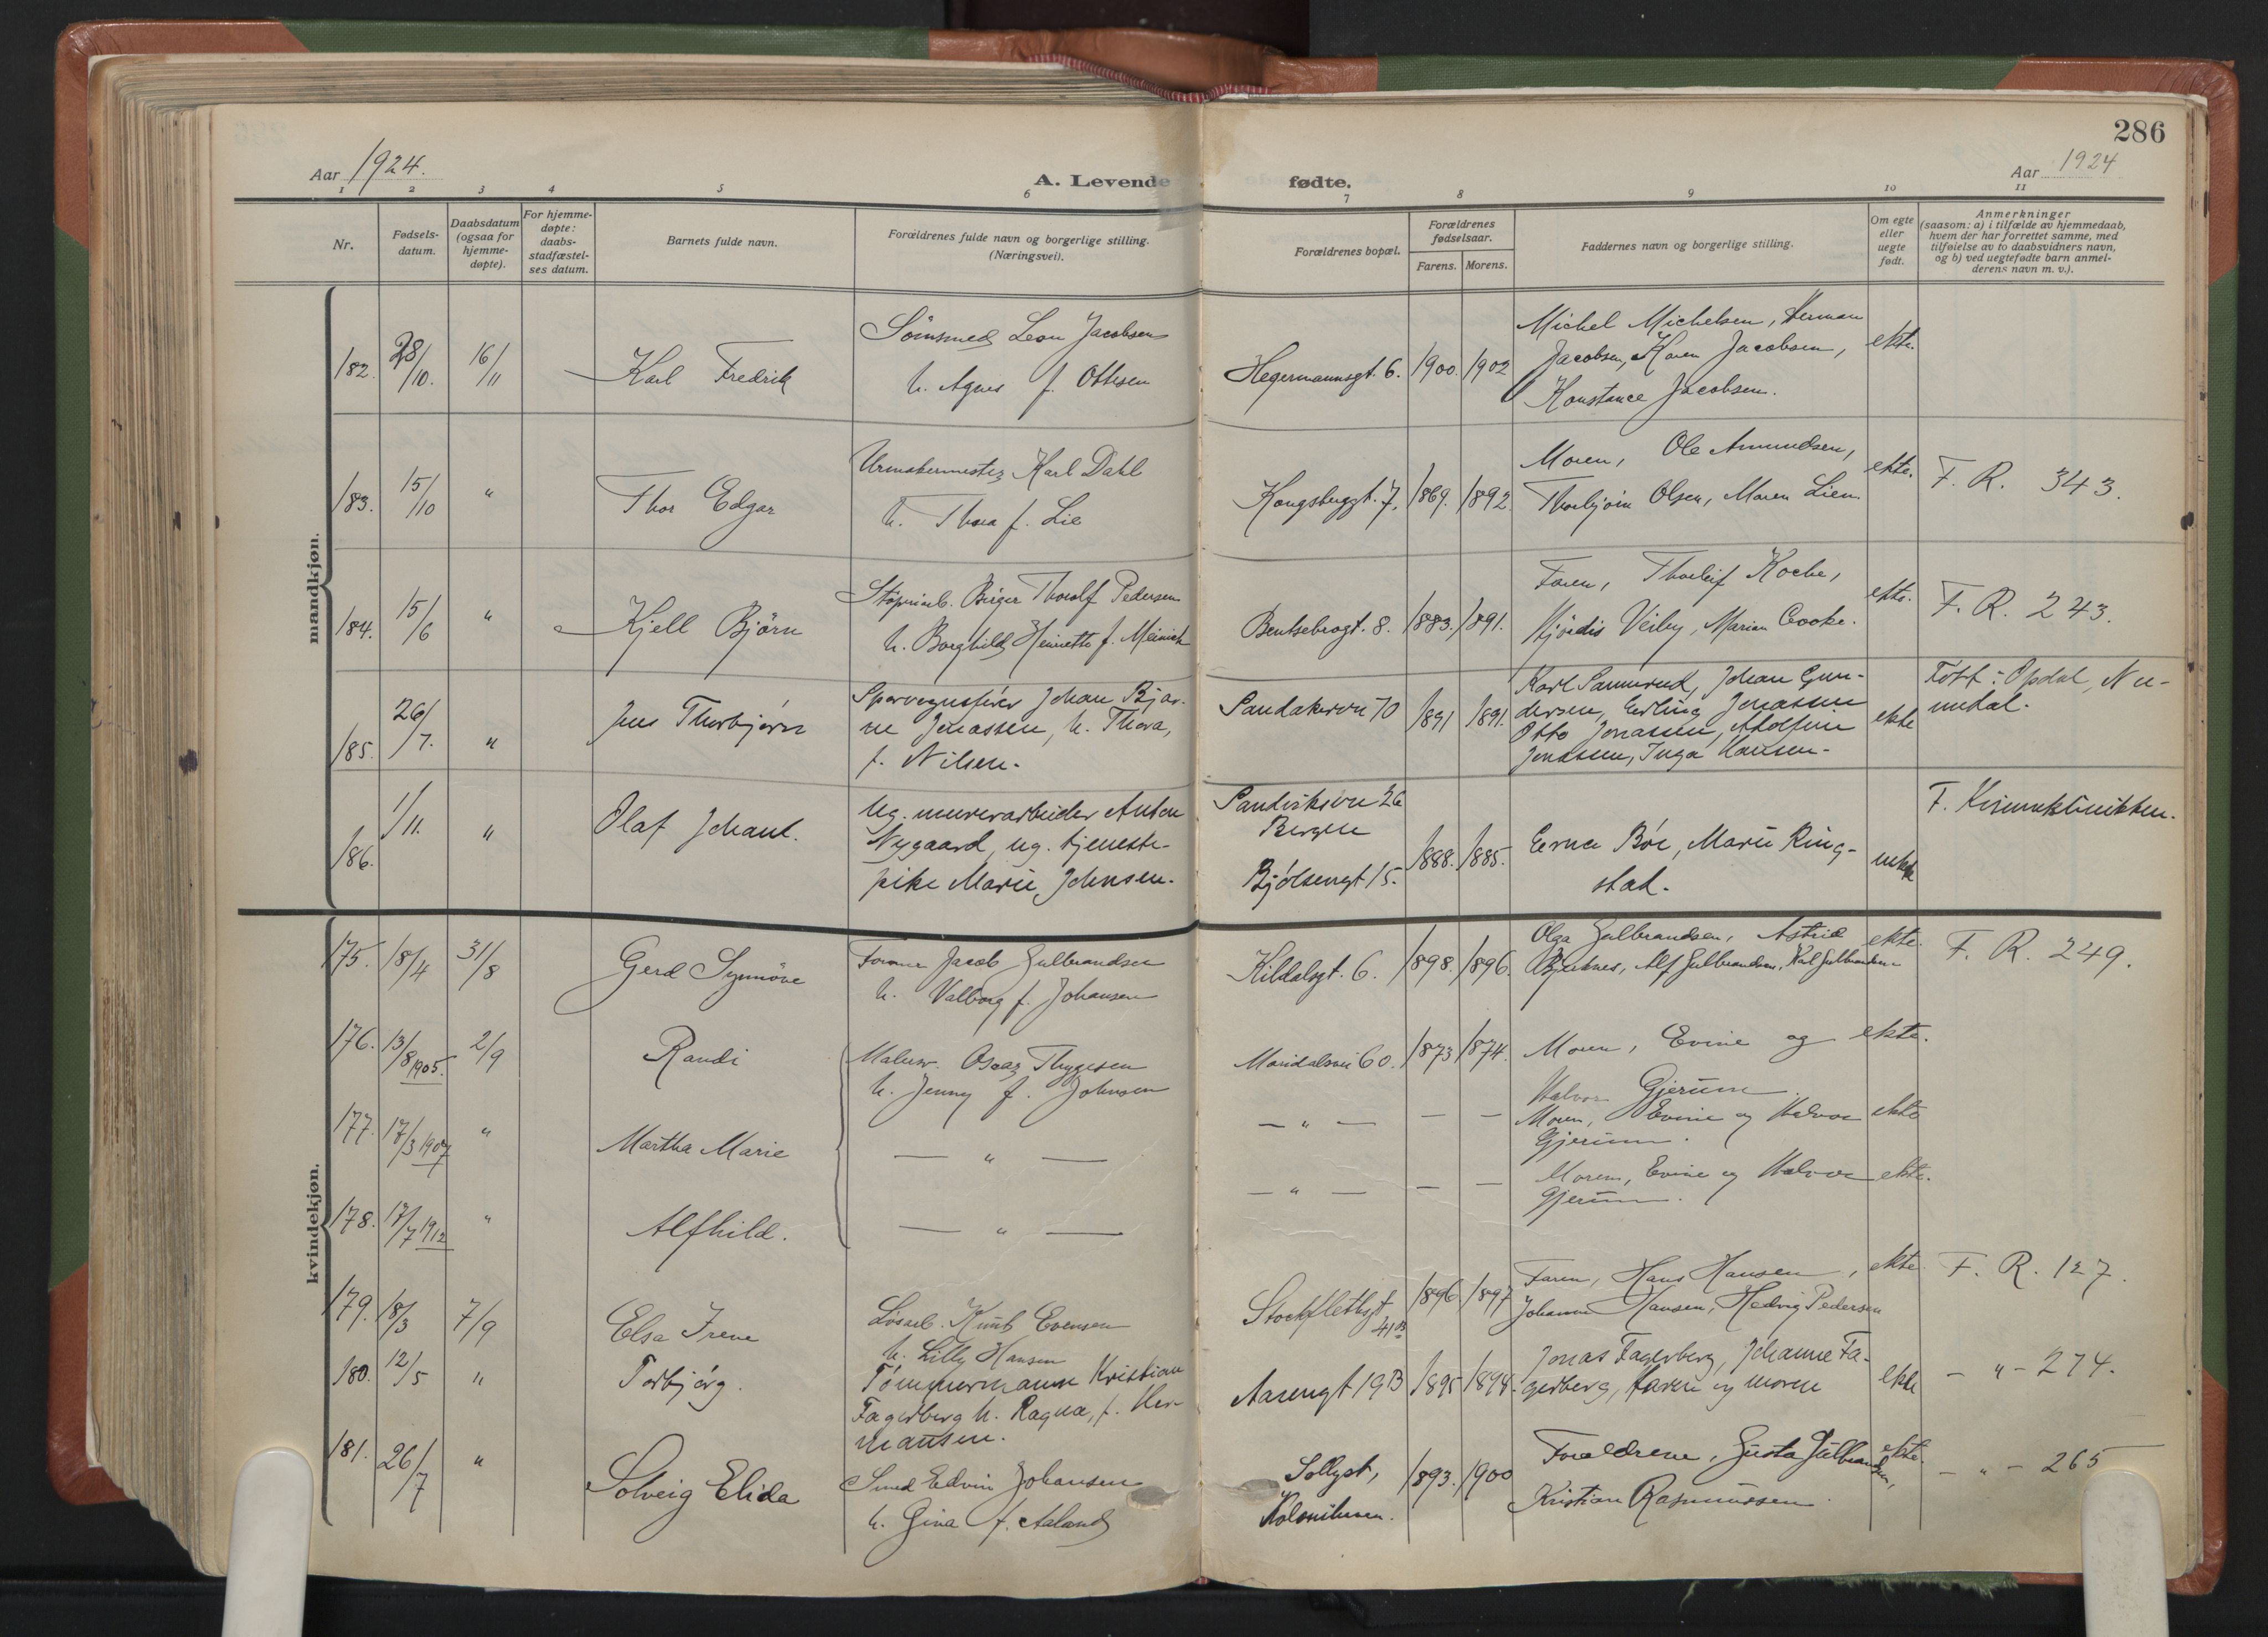 286
Aar 1924.
A. Levende fødte.
Aar 1924
1 2 3 4 5 6 7 8 9 10 11
Nr.
Fødsels-
datum.
Daabsdatum
(ogsaa for
hjemme-
døpte).
For hjemme-
døpte:
daabs-
stadfæstel-
ses datum.
Barnets fulde navn.
Forældrenes fulde navn og borgerlige stilling.
(Næringsvei).
Forældrenes bopæl.
Forældrenes
fødselsaar.
Farens. Morens.
Faddernes navn og borgerlige stilling.
Om egte
eller
uegte
født.
Anmerkninger
(saasom: a) i tilfælde av hjemmedaab,
hvem der har forrettet samme, med
tilføielse av to daabsvidners navn,
og b) ved uegtefødte barn anmel-
derens navn m. v.).
mandkjøn.
182. 28/10. 16/11 Karl Fredrik
Sömsmed Leon Jacobsen
h. Agnes f. Ottesen
Hegermannsgt. 6. 1900. 1902
Michel Michelsen, Herman
Jacobsen, Karen Jacobsen,
Konstance Jacobsen.
ekte.
183. 15/10 " Thor Edgar
Urmakermester Karl Dahl
h. Thora f. Lie
Kongsberggt. 7. 1869. 1892.
Moren, Ole Amundsen,
Thorbjörn Olsen, Maren Lien
ekte.
F. R. 343.
184. 15/6 " Kjell Björn
Støperiarb. Birger Thorolf Pedersen
h. Borghild Henriette f. Meinich
Bentsebrogt. 8. 1883. 1891.
Faren, Thorleif Koche,
Hjördis Veiby, Marian Cooke.
ekte.
F. R. 243.
185. 26/7. " Jens Thorbjørn
Sporvognsfører Johan Bjar-
ne Jonassen, h. Thora,
f. Nilsen.
Sandakervn 70 1891 1891.
Karl Sannerud, Johan Gun-
dersen, Erling Jonassen
Otto Jonassen, Adolfine
Jonassen, Inga Hansen-
ekte
Født i Opdal, Nu-
medal.
186. 1/11. " Olaf Johant.
Ug. murerarbeider Anton
Nygaard, ug. tjeneste-
pike Marie Johnsen.
Sandviksvn 26
Bergen
Bjølsengt 15. 1888. 1885.
Erna Bøe, Marie Ring-
stad.
uekte
F. Kvinneklinikken.
kvindekjøn.
175. 18/4 31/8 Gerd Synnöve
Former Jacob Gulbrandsen
h. Valborg f. Johansen
Kildalsgt. 6. 1898. 1896.
Olga Gulbrandsen, Astrid
Bjerknes, Alf Gulbrandsen, Karl Gulbrandsen
ekte.
F. R. 249.
176. 13/8 1905. 2/9 Randi
Malerm. Oscar Thygesen
h. Jenny f. Johnsen
Maridalsvei 60. 1873 1874.
Moren, Evine og
Halvor Gjerum.
ekte.
177. 17/3 1907 " Martha Marie
— " —
— " — — —
Moren, Evine og Halvor
Gjerum.
ekte
178. 17/7 1912 " Alfhild.
— " —
— " — — —
Moren, Evine og Halvor
Gjerum.
ekte.
179. 18/3 7/9 Elsa Irene
Løsarb. Knut Evensen
h. Lilly Hansen
Stockflethsgt. 41B 1896. 1897
Faren, Hans Hansen,
Johanne Hansen, Hedvig Pedersen
ekte
F. R. 127.
180. 12/5 " Torbjørg.
Tømmermann Kristian
Fagerberg h. Ragna, f. Her-
mansen.
Aasengt 19B 1895 1894.
Jonas Fagerberg, Johanne Fa-
gerberg, faren og moren
ekte
- " - 274.
181. 26/7 " Solveig Elida
Smed Edvin Johansen
h. Gina f. Aaland
Sollyst,
Kolonihaven. 1893. 1900
Foreldrene, Gusta Gulbrandsen,
Kristian Rasmussen.
ekte.
- " - 265